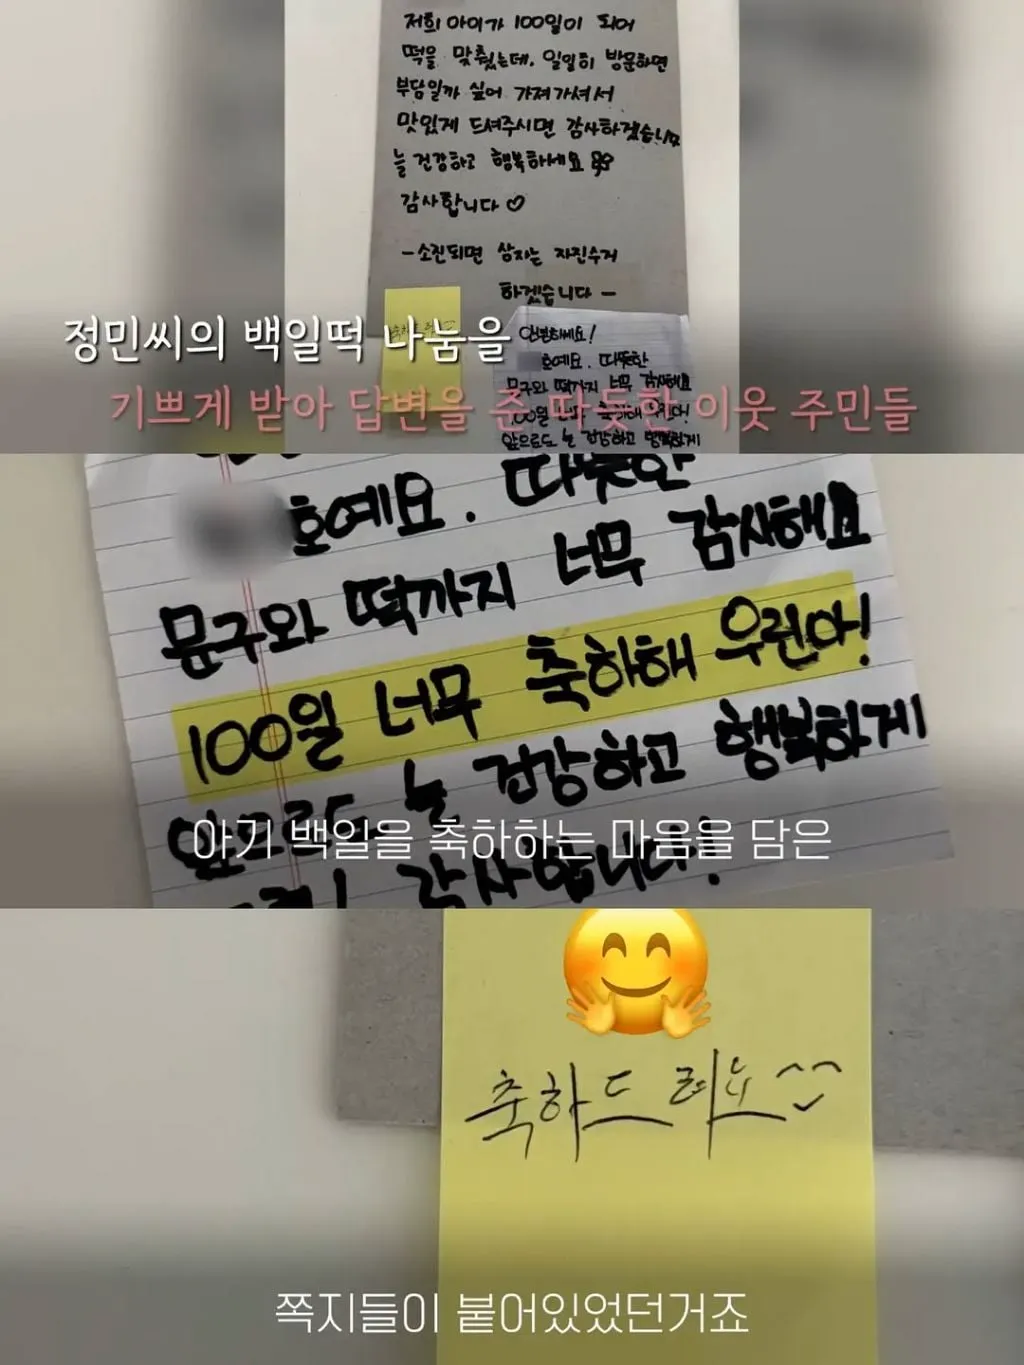 저희 아이가 100일이 되어
떡을 맞췄는데, 일일히 방문하면
부담일까 싶어 가져가셔서
맛있게 드셔주시면 감사하겠습니다
늘 건강하고 행복하세요
감사합니다♡
-소진되면 상자는 자진수거
하겠습니다-
축하드려요
정민씨의 백일떡 나눔을
기쁘게 받아 답변을 준 따듯한 이웃 주민들
안녕하세요!
호예요. 따뜻한
문구와 떡까지 너무 감사해요
100일 너무 축하해 우린아!
앞으로도 늘 건강하고 행복하게
호예요. 따뜻한
문구와 떡까지 너무 감사해요
100일 너무 축하해 우린아!
앞으로도 늘 건강하고 행복하게
감사합니다!
아기 백일을 축하하는 마음을 담은
축하드려요^^
쪽지들이 붙어있었던거죠